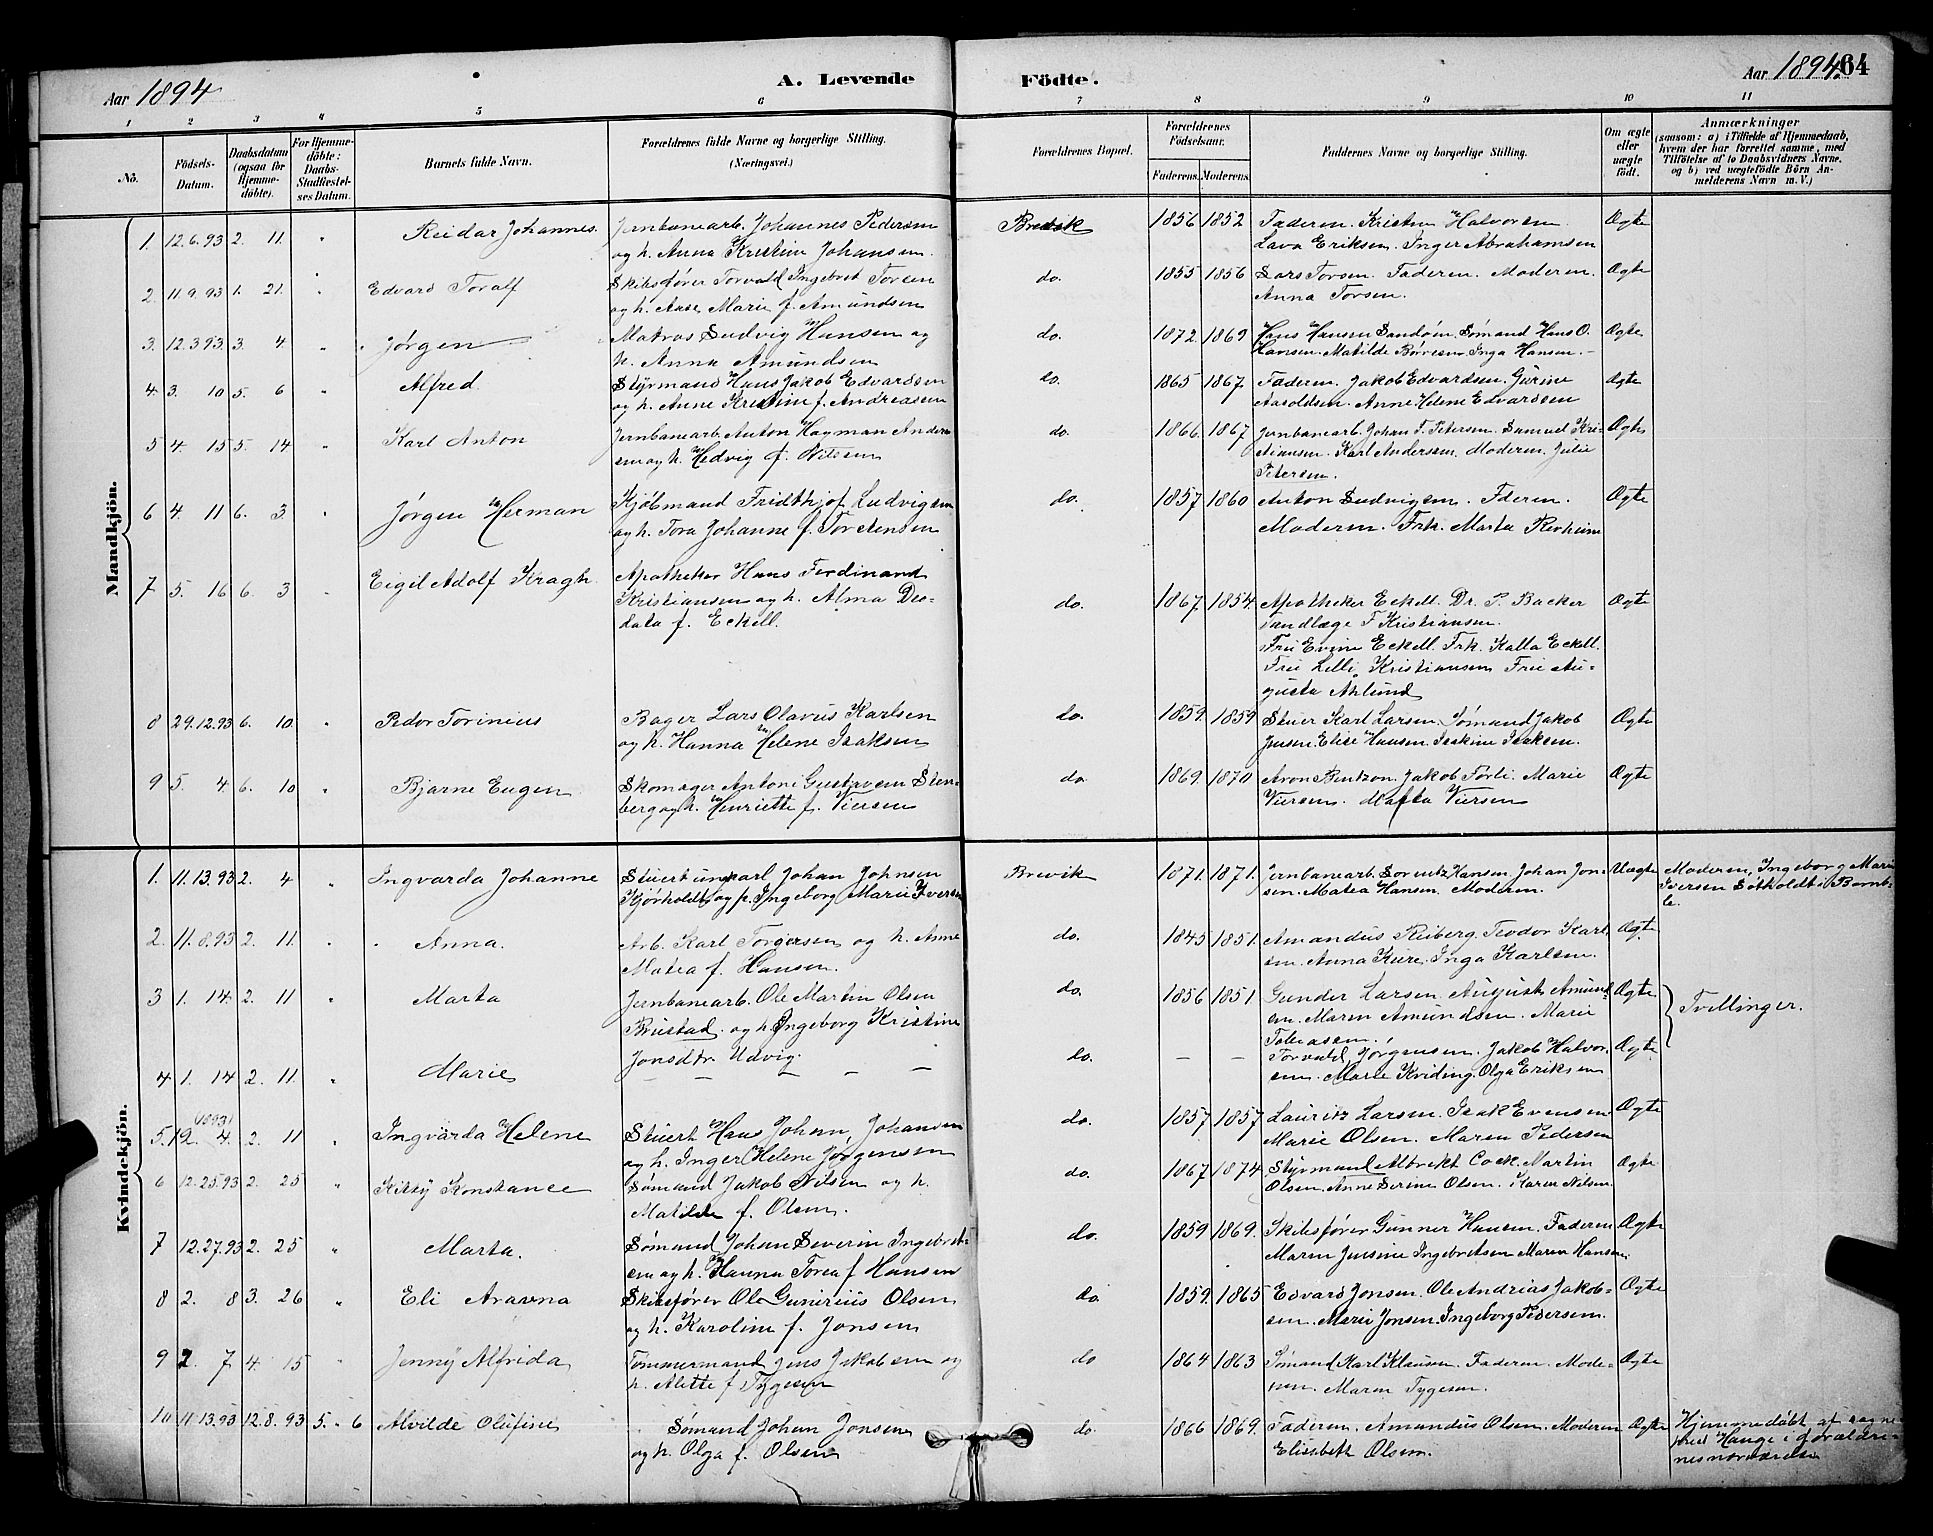 Aar 1894
A. Levende
Födte.
Aar 1894.
64
1 2 3 4 5 6 7 8 9 10 11
No.
Födsels-Datum.
Daabsdatum (ogsaa for Hjemmedöbte).
For Hjemmedöbte: Daabs-Stadfestelses Datum.
Barnets fulde Navn.
Forældrenes fulde Navne og borgerlige Stilling. (Næringsvei.)
Forældrenes Bopæl.
Forældrenes Födselsaar.
Faderens. Moderens.
Faddernes Navne og borgerlige Stilling.
Om ægte eller uægte födt.
Anmærkninger
(saasom: a) i Tilfælde af Hjemmedaab, hvem der har forrettet samme, med Tilföielse af to Daabsvidners Navne. og b) ved uægtefödte Börn Anmelderens Navn m. V.)
Mandkjön.
1. 12.6.93 2. 11. " Reidar Johannes. Jernbanearb. Johannes Pedersen
og h. Anna Kristine Johansen. Brevik 1856 1852 Faderen. Kristen Halvorsen
Lava Eriksen. Inger Abrahamsen Ægte
2. 11.9.93 1. 21. " Edvard Toralf Skibsfører Torvald Ingebret Torsen
og h. Aase Marie f. Amundsen do. 1855 1856 Lars Torsen. Faderen. Moderen.
Anna Torsen. Ægte
3. 12.3.93. 3. 4. " Jørgen Matros Ludvig Hansen og
h. Anna Amundsen do. 1872 1869 Hans Hansen Sandøen Sømand Hans O.
Hansen. Matilde Børresen Inga Hansen. Ægte
4 3. 10 5. 6 " Alfred. Styrmand Hans Jakob Edvardsen
og h. Anne Kristine f. Andreasen do. 1865 1867 Faderen. Jakob Edvardsen. Gurine
Aaroldsen. Anne Helene Edvardsen Ægte
5 4. 15 5. 14 " Karl Anton Jernbanearb. Anton Hagman Ander
sen og h. Hedvig f. Nilsen do. 1866. 1867 Jernbanearb. Johan F. Petersen. Samuel Kri-
stiansen. Karl Andersen. Moderen. Julie
Petersen. Ægte
6 4. 11 6. 3. " Jørgen Herman Kjøbmand Fridthjof Ludvigsen
og h. Tora Johanne f. Torstensen do. 1857 1860 Anton Ludvigsen. Fderen.
Moderen. Frk. Marta Revheim Ægte
7 5. 16 6. 3 " Eigil Adolf Kragh. Apotheker Hans Ferdinand
Kristiansen og h. Alma Deo-
data f. Eckell. do. 1867 1854. Apotheker Eckell. Dr. P. Backer
Tandlæge F Kristiansen.
Fru Evine Eckell. Frk. Kalla Eckell.
Fru Lilli Kristiansen Fru Au-
gusta Aklund Ægte
8 29.12.93 6. 10 " Peder Torinius Bager Lars Olavus Karlsen
og h. Hanna Helene Isaksen do. 1859. 1859 Stuer Karl Larsen. Sømand Jakob
Jensen. Elise Hansen. Isakine Isaksen. Ægte
9 5. 4. 6. 10 " Bjarne Eugen Skomager Antoni Gustavsen Sten-
berg og h. Henriette f. Viersen do. 1869. 1870 Aron Bentzon. Jakob Førli. Marie
Viersen. Marta Viersen Ægte
Kvindekjön.
1. 11.13.93 2. 4 " Ingvarda Johanne Stuert ungkarl Johan Johnsen
Kjørholdt og p. Ingeborg Marie Iversen Brevik 1871. 1871. Jernbanearb. Lorentz Hansen. Johan Jon-
sen. Matea Hansen. Moderen. Uægte Moderen, Ingeborg Marie
Iversen Søtholdt i Bamb-
le.
2. 11.8.93 2. 11 " Anna. Arb. Karl Torgersen og h. Anne
Matea f. Hansen. do. 1845 1851. Amandus Reiberg. Teodor Karl
sen. Anna Kure. Inga Karlsen. Ægte
3 1. 14. 2. 11 " Marta Jernbanearb. Ole Martin Olsen
Brustad og h. Ingeborg Kristine
Jonsdtr. Udvig. do. 1856 1851 Gunder Larsen. August Amund
sen. Maren Amundsen. Marie
Tobiasen. Ægte Tvillinger.
4 1. 14 2. 11. " Marie — — — — do. — — Torvald Jørgensen. Jakob Halvor.
sen. Marie Kviding. Olga Eriksen Ægte
5. 12. 4. (1893) 2. 11 " Ingvarda Helene Stuert Hans Johan Johansen
og h. Inger Helene Jørgensen do. 1857 1857 Lauritz Larsen. Isak Evensen
Marie Olsen. Maren Pedersen Ægte
6 12.25.93 2. 25 " Kitty Konstance Sømand Jakob Nilsen og h.
Matilde f. Olsen. do. 1867 1874 Styrmand Albrekt Cock. Martin
Olsen. Anne Serine Olsen. Karen Nilsen. Ægte
7 12.27.93 2. 25 " Marta. Sømand Johan Severin Ingebret-
sen og h. Hanna Torea f Hansen do. 1859 1869. Skibsfører Gunner Hansen. Faderen
Maren Jensine Ingebretsen Maren Hansen. Ægte
8 2. 8 3. 26 " Eli Aravna Skibsfører Ole Gunerius Olsen
og h. Karoline f. Jonsen do. 1859. 1865 Edvard Jonsen. Ole Andrias Jakob-
sen. Marie Jonsen. Ingeborg Pedersen. Ægte
9 2. 7 4. 15 " Jenny Alfrida Tømmermand Jens Jakobsen og
h. Alette f Tygesen do 1864 1863 Sømand Karl Klausen. Faderen. Mode-
ren. Maren Tygesen. Ægte
10 11.13.93 12.8.93 5. " 6 Alvilde Olufine Sømand Johan Jonsen
og h. Olga f. Olsen do. 1866 1869. Faderen. Amandus Olsen. Moderen
Elisabeth Olsen. Ægte Hjemmedøbt af sogne
præst Hauge i forældre-
nes nærværelse